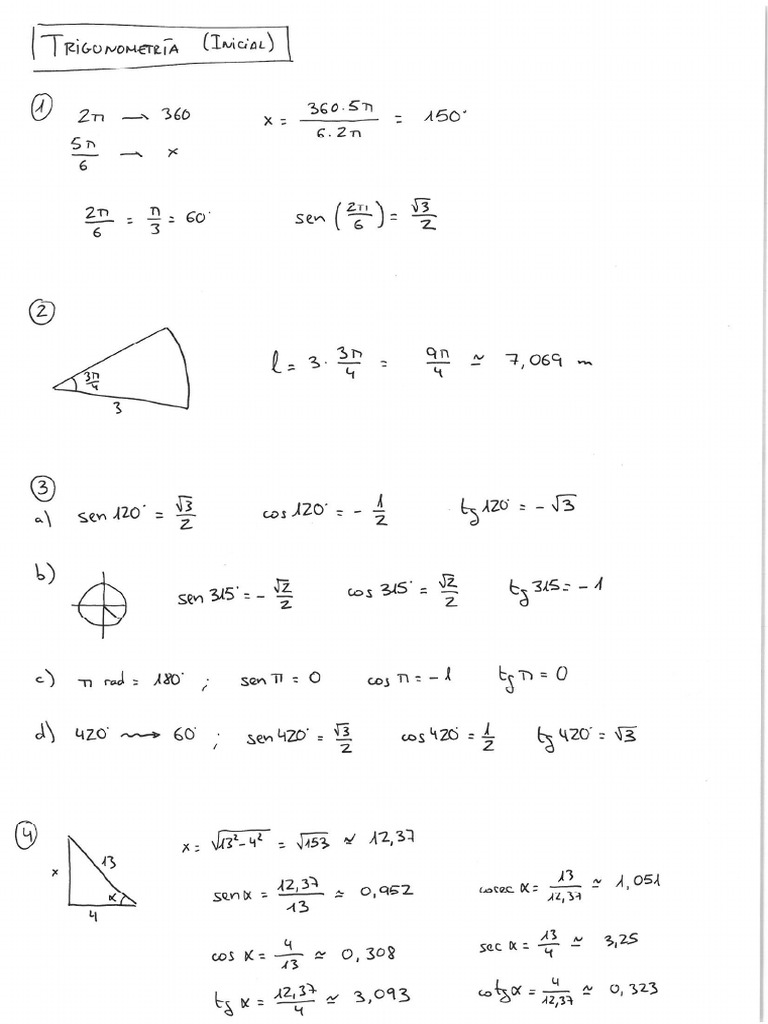 TRIGONOMETRÍA (INICIAL)
① 2π → 360 x = 360·5π / 6·2π = 150°
5π/6 → x
2π/6 = π/3 = 60° sen(2π/6) = √3/2
②
3π/4
3
l = 3 · 3π/4 = 9π/4 ≃ 7,069 m
③
a) sen 120° = √3/2 cos 120° = -1/2 tg 120° = -√3
b) sen 315° = -√2/2 cos 315° = √2/2 tg 315 = -1
c) π rad = 180° ; sen π = 0 cos π = -1 tg π = 0
d) 420° ⇝ 60° ; sen 420° = √3/2 cos 420° = 1/2 tg 420° = √3
④ x = √(13² - 4²) = √153 ≃ 12,37
x
13
α
4
sen α = 12,37/13 ≃ 0,952 cosec α = 13/12,37 ≃ 1,051
cos α = 4/13 ≃ 0,308 sec α = 13/4 ≃ 3,25
tg α = 12,37/4 ≃ 3,093 cotg α = 4/12,37 ≃ 0,323